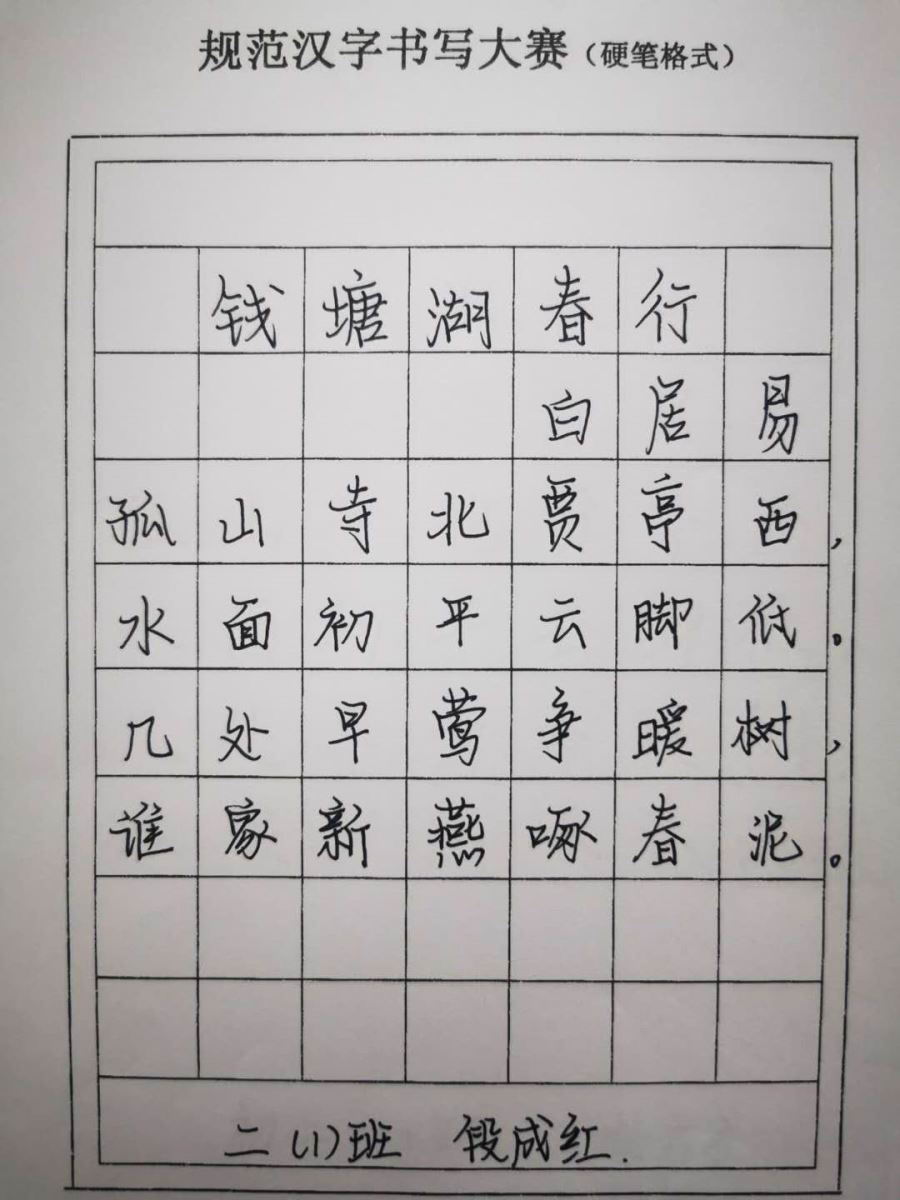 规范汉字书写大赛（硬笔格式）
钱塘湖春行
白居易
孤山寺北贾亭西，
水面初平云脚低。
几处早莺争暖树，
谁家新燕啄春泥。
二（1）班 段成红.